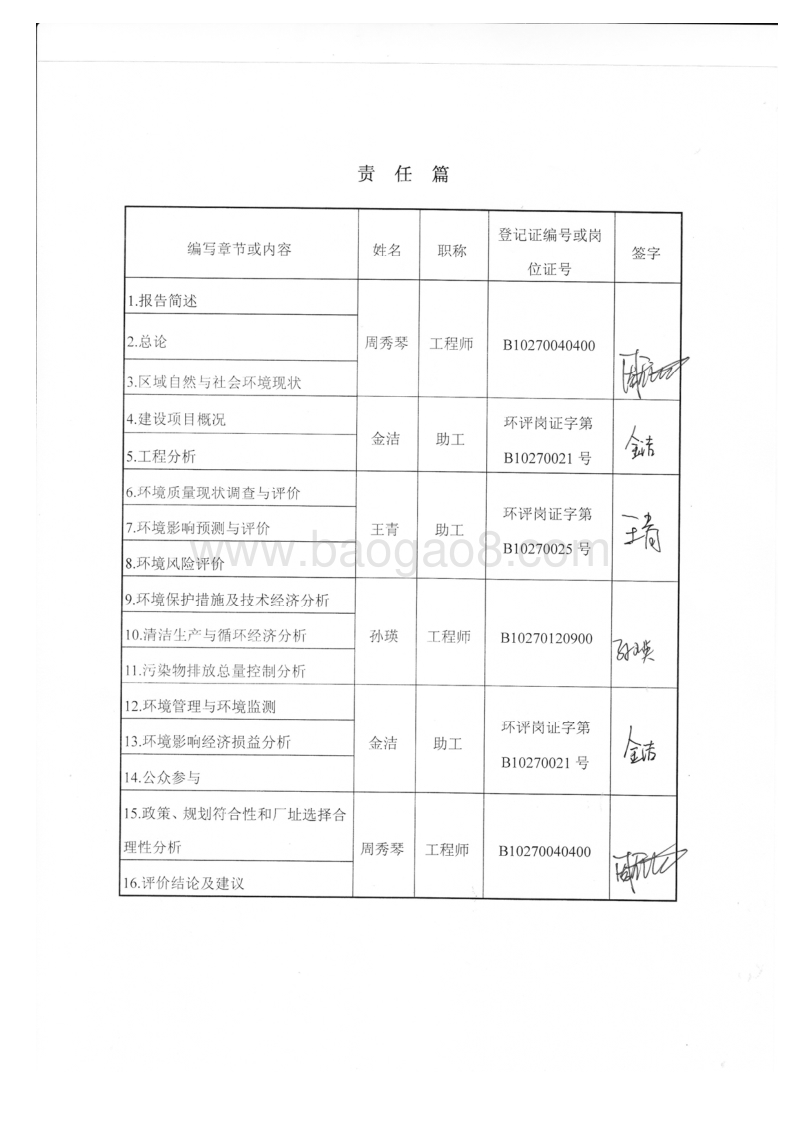 责 任 篇
编写章节或内容 姓名 职称 登记证编号或岗位证号 签字
1.报告简述
2.总论 周秀琴 工程师 B10270040400
3.区域自然与社会环境现状
4.建设项目概况 金洁 助工 环评岗证字第 金洁
5.工程分析 B10270021 号
6.环境质量现状调查与评价
7.环境影响预测与评价 王青 助工 环评岗证字第 王青
8.环境风险评价 B10270025 号
www.baogao8.com
9.环境保护措施及技术经济分析
10.清洁生产与循环经济分析 孙瑛 工程师 B10270120900 孙瑛
11.污染物排放总量控制分析
12.环境管理与环境监测
13.环境影响经济损益分析 金洁 助工 环评岗证字第 金洁
14.公众参与 B10270021 号
15.政策、规划符合性和厂址选择合
理性分析 周秀琴 工程师 B10270040400
16.评价结论及建议